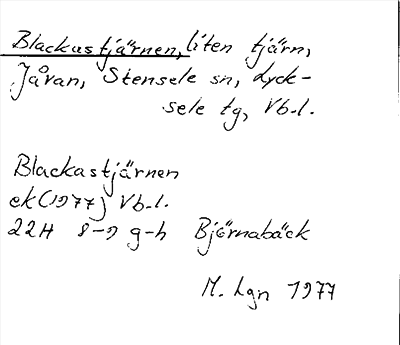 Blackastjärnen, liten tjärn,
Jåvan, Stensele sn, Lyck-
sele tg, Vb.l.
Blackastjärnen
ek(1977) Vb.l.
22H 8-9 g-h Björnabäck
M. Lgn 1977